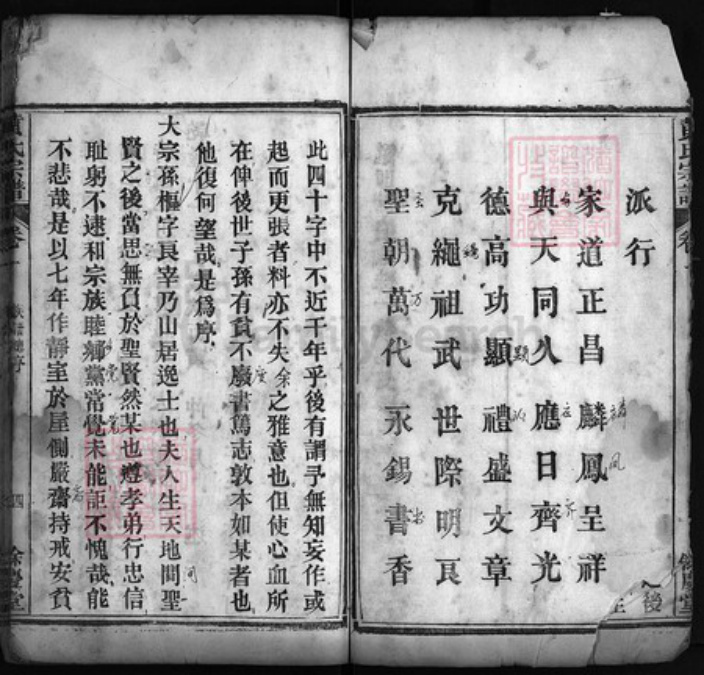 派行
家道正昌麟鳳呈祥
與天同久應日齊光
德高功顯禮盛文章
克繩祖武世際明良
聖朝萬代永錫書香
後
此四十字中不近千年乎後有謂予無知妄作或
起而更張者料亦不失余之雅意也但使心血所
在俾後世子孫有貧不廢書篤志敦本如某者也
他復何望哉是爲序
大宗孫樞字良宰乃山居逸士也夫人生天地間聖
賢之後當思無負於聖賢然某也遵孝弟行忠信
耻躬不逮和宗族睦鄉黨常覺未能詎不愧哉能
不悲哉是以七年作靜室於屋側嚴齋持戒安貧
黃氏宗譜
卷一
四
餘慶堂
FamilySearch